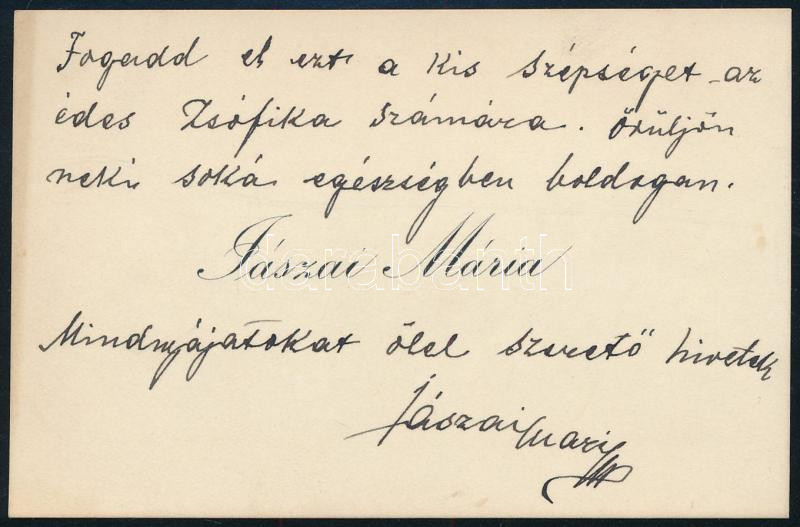 Fogadd el ezt a kis szépséget az
édes Zsófika számára. örüljön
neki soká egészségben boldogan.
Jászai Mária
darabanth
Mindnyájatokat ölel szerető hivetek
Jászai Mari